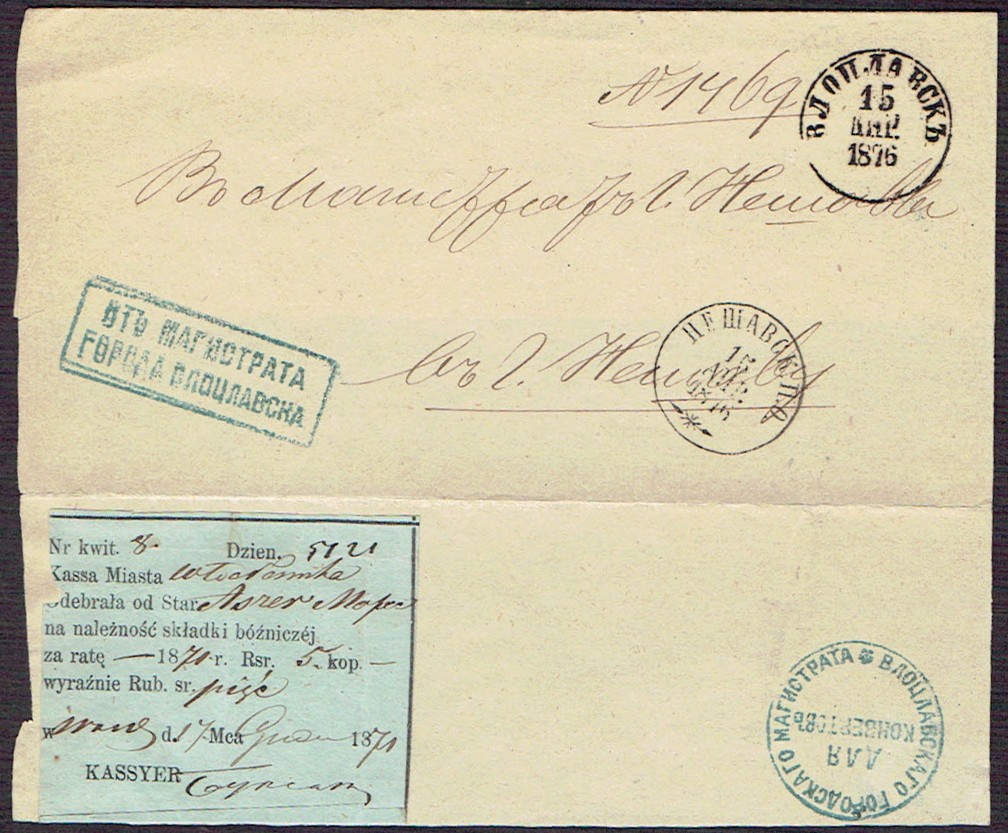 № 1469
ВЛОЦЛАВСКЪ
15
АПР.
1876
Въ Магистратъ г. Нешавы
ОТЪ МАГИСТРАТА
ГОРОДА ВЛОЦЛАВСКА
въ г. Нешаву
НЕШАВСК. П.О.
15
АПР.
1876
Nr kwit. 8 Dzien. 5121
Kassa Miasta
Odebrała od Star Aszer
na należność składki bóźniczéj
za ratę — 1871 r. Rsr. 5 kop. —
wyraźnie Rub. sr. pięć
w d. 17 Mca 1871
KASSYER
ВЛОЦЛАВСКАГО ГОРОДСКАГО МАГИСТРАТА
ДЛЯ
КОНВЕРТОВЪ